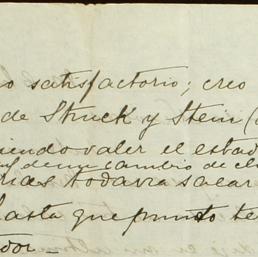 o satisfactorio; creo
de Struck y Stein (
iendo valer el estad
de un cambio de cli
rias todavia sacar
hasta que punto te
dor